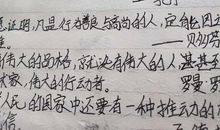 证明，凡是行为善良与高尚的人，定能因
贝多芬
伟大的品格，就没有伟大的人，甚至
术家，伟大的行动者。
罗曼
人民的国家中还要有一种推动的